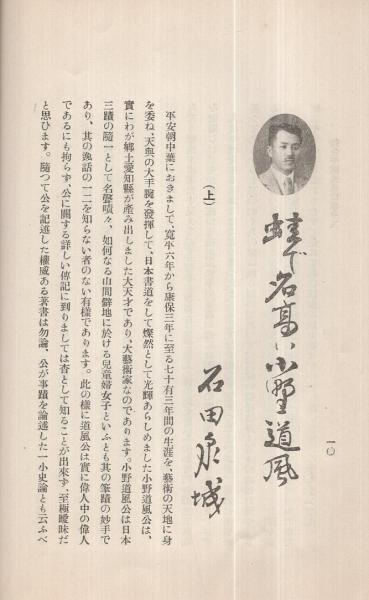 蛙で名高い小野道風
一〇
石田泉城
(上)
平安朝中葉におきまして、寛平六年から康保三年に至る七十有三年間の生涯を、藝術の天地に身
を委ね、天與の大手腕を發揮して、日本書道をして燦然として光輝あらしめました小野道風公は、
實にわが鄕土愛知縣が產み出しました大天才であり、大藝術家なのであります。小野道風公は日本
三蹟の隨一として名聲嘖々、如何なる山間僻地に於ける兒童婦女子といふとも其の筆蹟の妙手で
あり、其の逸話の一二を知らない者のない有樣であります。此の樣に道風公は實に偉人中の偉人
であるにも拘らず、公に關する詳しい傳記に到りましては杳として知ることが出來ず、至極曖昧だ
と思ひます。隨つて公を記述した權威ある著書は勿論、公が事蹟を論述した一小史論とも云ふべ